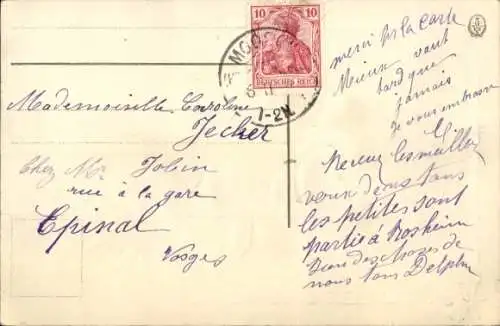 10 10
DEUTSCHES REICH
7-2N.
Mademoiselle Caroline
Jecker
Chez Mr Jobin
rue à la gare
Epinal
Vosges
merci pr la carte
Mieux vaut
tard que
jamais
Je vous embrasse
Recevez les meilleurs
voeux de nous tous
les petites sont
partie à Rosheim
Bien des choses de
nous tous Delphine